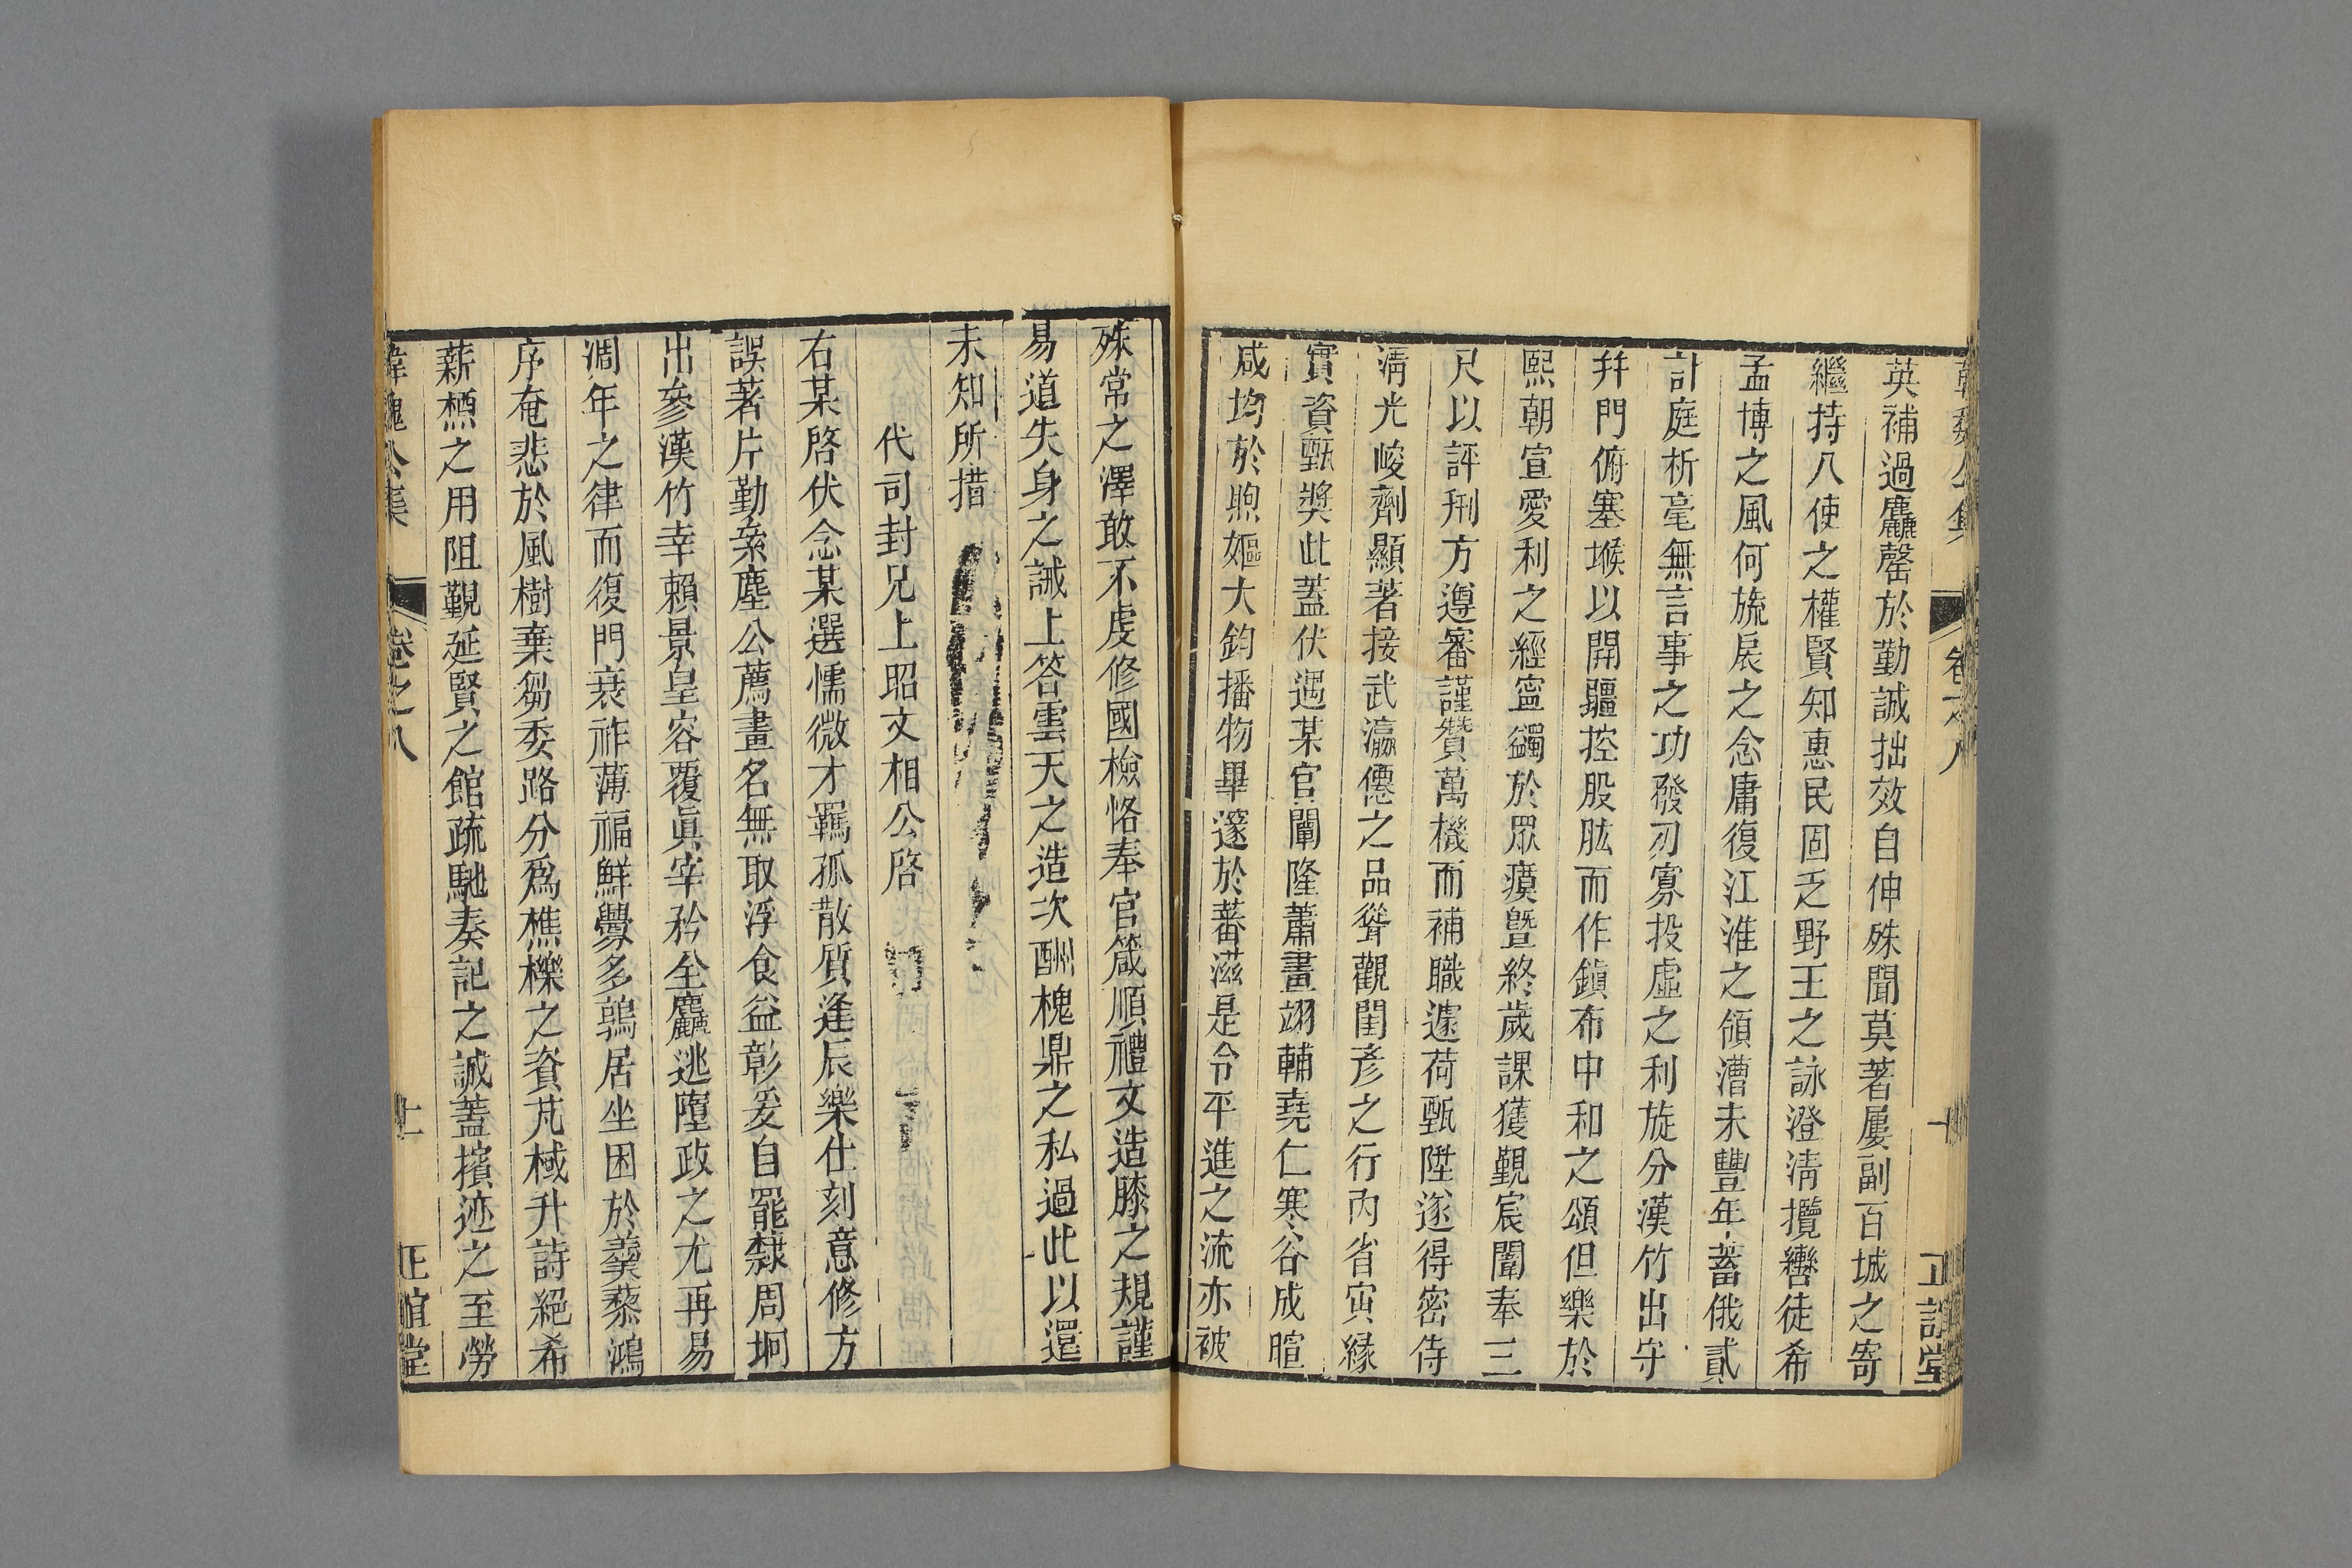 韓魏公集 卷之八 十 正誼堂
英補過麤罄於勤誠拙效自伸殊聞莫著屢副百城之寄
繼持八使之權賢知惠民固乏野王之詠澄淸攬轡徒希
孟博之風何旒扆之念庸復江淮之領漕未豐年蓄俄貳
計庭析毫無言事之功發刃寡投虛之利旋分漢竹出守
幷門俯塞堠以開疆控股肱而作鎮布中和之頌但樂於
熙朝宣愛利之經寧蠲於眾瘼暨終歲課獲覲宸闈奉三
尺以評刑方遵審謹贊萬機而補職遽荷甄陞遂得密侍
淸光峻劑顯著接武瀛僊之品聳觀閨彥之行內省寅緣
實資甄奬此蓋伏遇某官闡隆蕭畫翊輔堯仁寒谷成暄
咸均於煦嫗大鈞播物畢邃於蕃滋是令平進之流亦被
殊常之澤敢不虔修國檢恪奉官箴順禮文造膝之規謹
易道失身之誡上答雲天之造次酬槐鼎之私過此以還
未知所措
代司封兄上昭文相公啓
右某啓伏念某選懦微才羈孤散質逢辰樂仕刻意修方
誤著片勤亲塵公薦畫名無取浮食益彰爰自罷隸周坰
出參漢竹幸賴景皇容覆眞宰矜全麤逃隳政之尤再易
凋年之律而復門衰祚薄福鮮釁多鶉居坐困於羹藜鴻
序奄悲於風樹棄芻委路分爲樵櫟之資芃棫升詩絕希
薪槱之用阻覲延賢之館疏馳奏記之誠蓋擯迹之至勞
韓魏公集 卷之八 十一 正誼堂